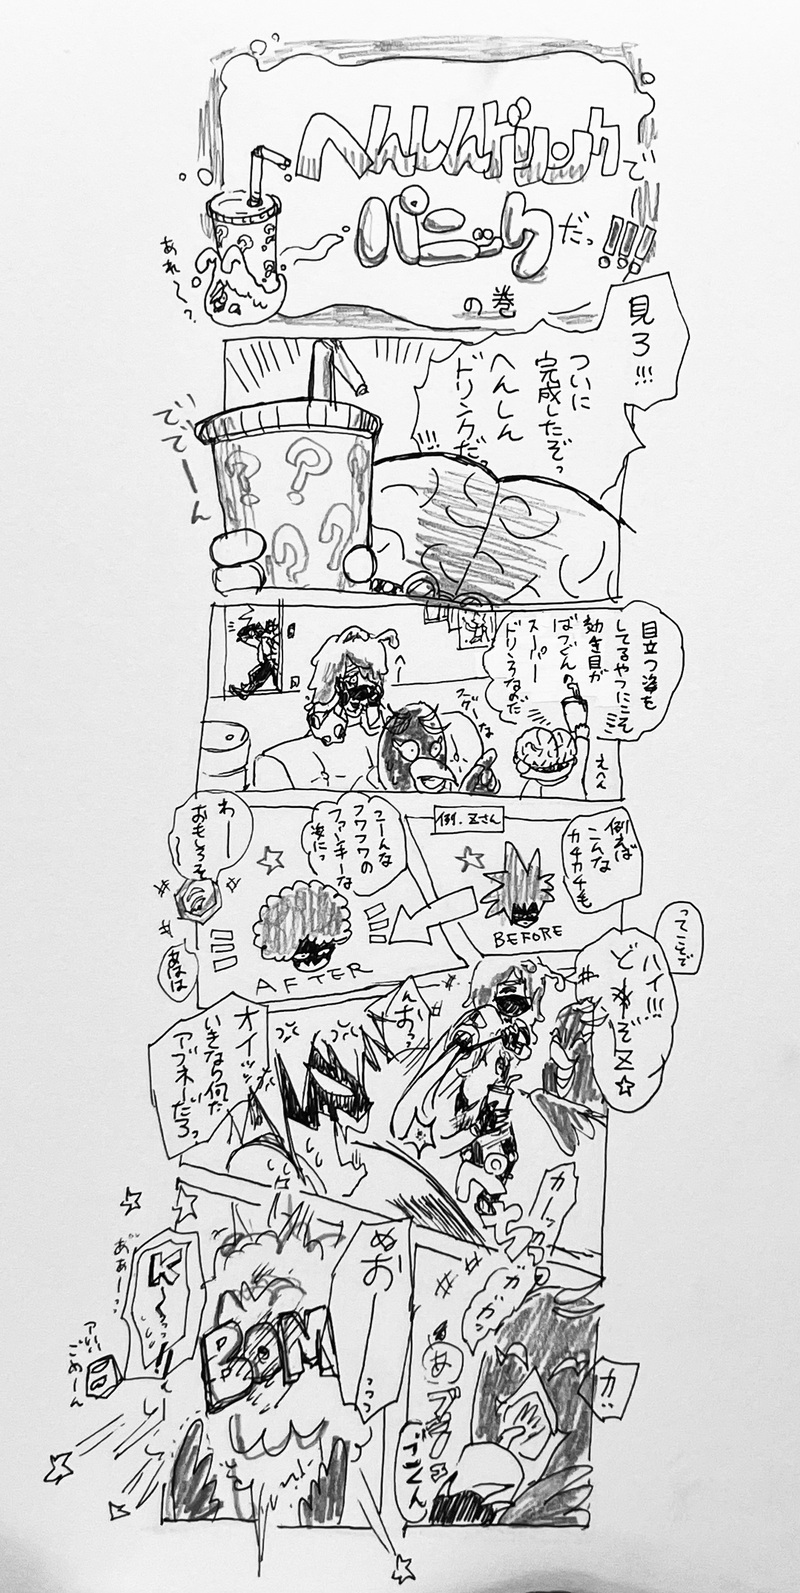 へんしんドリンクで
パニックだっ!!!
の巻
あれ〜?
見ろ!!!
ついに
完成したぞっ
へんしん
ドリンクだっ
!!!
ででーん
目立つ姿を
してるやつにこそ
効き目が
ばつぐんの
スーパー
ドリンクなのだ
えへん
例.Zさん
例えば
こんな
カチカチも
BEFORE
こーんな
フワフワの
ファンキーな
姿にっ
AFTER
わー
おもしろそ〜
あはは
ってことで
ハイ!!!
どーぞZ☆
んおっ
オイッ
いきなり何だ
アブネーだろっ
ガーッ
ガガッ
ガッ
ごくん
ぬおーーっっっ
BOM
K〜
ああーっ
ごめーん